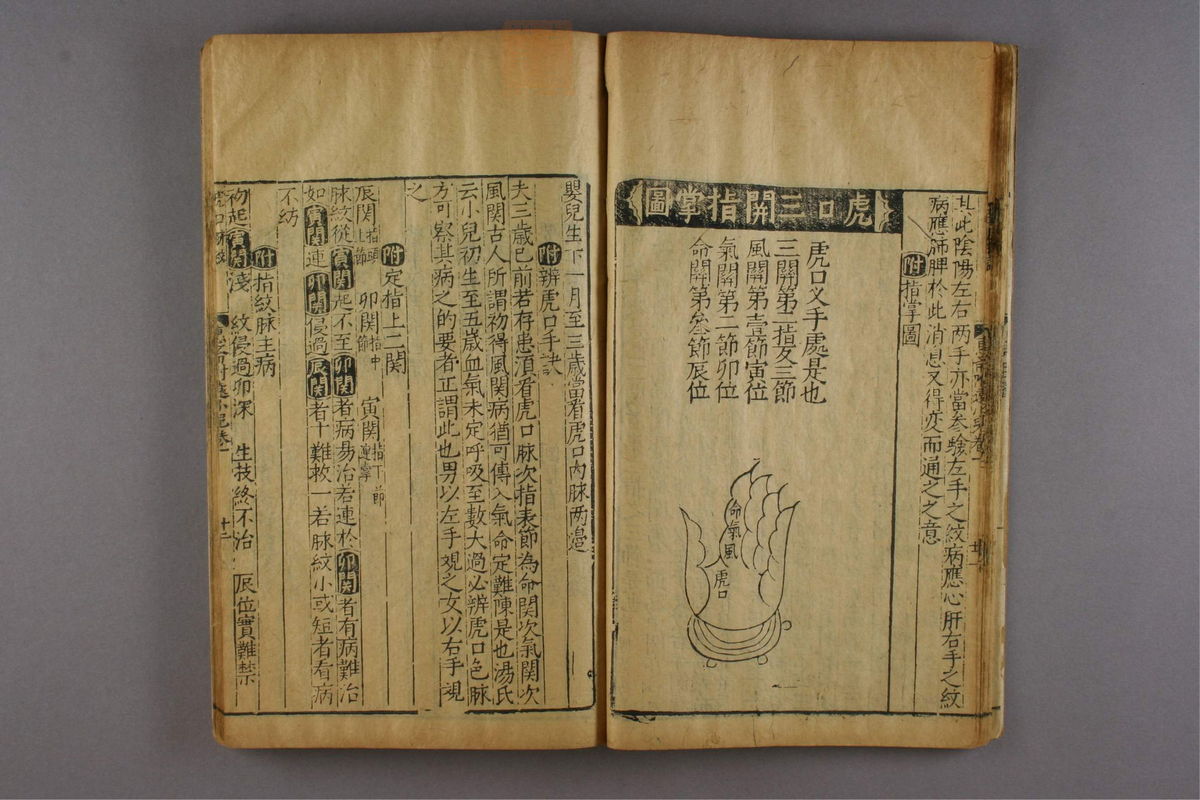 其此陰陽左右两手亦當參驗左手之紋病應心肝右手之紋
病應肺脾於此消息又得变而通之之意
附指掌圖
虎口三関指掌圖
虎口乂手處是也
三関第二指又三節
風関第壹節寅位
氣関第二節卯位
命関第叁節辰位
命氣風
虎口
嬰兒生下一月至三歲當看虎口內脉两邉
附辨虎口手訣
夫三歲已前若存患湏看虎口脉次指表節為命関次氣関次
風関古人所謂初得風関病猶可傳入氣命定難陳是也湯氏
云小兒初生至五歲血氣未定呼吸至數大過必辨虎口色脉
方可察其病之的要者正謂此也男以左手視之女以右手視
之
附定指上三関
辰関指頭上節 卯関指中節 寅関指下節連掌
脉紋從寅関起不至卯関者病易治若連於卯関者有病難治
如寅関連卯関侵過辰関者十難救一若脉紋小或短者看病
不妨
附指紋脉主病
初起寅関淺 紋侵過卯深 生技終不治 辰位實難禁
十三